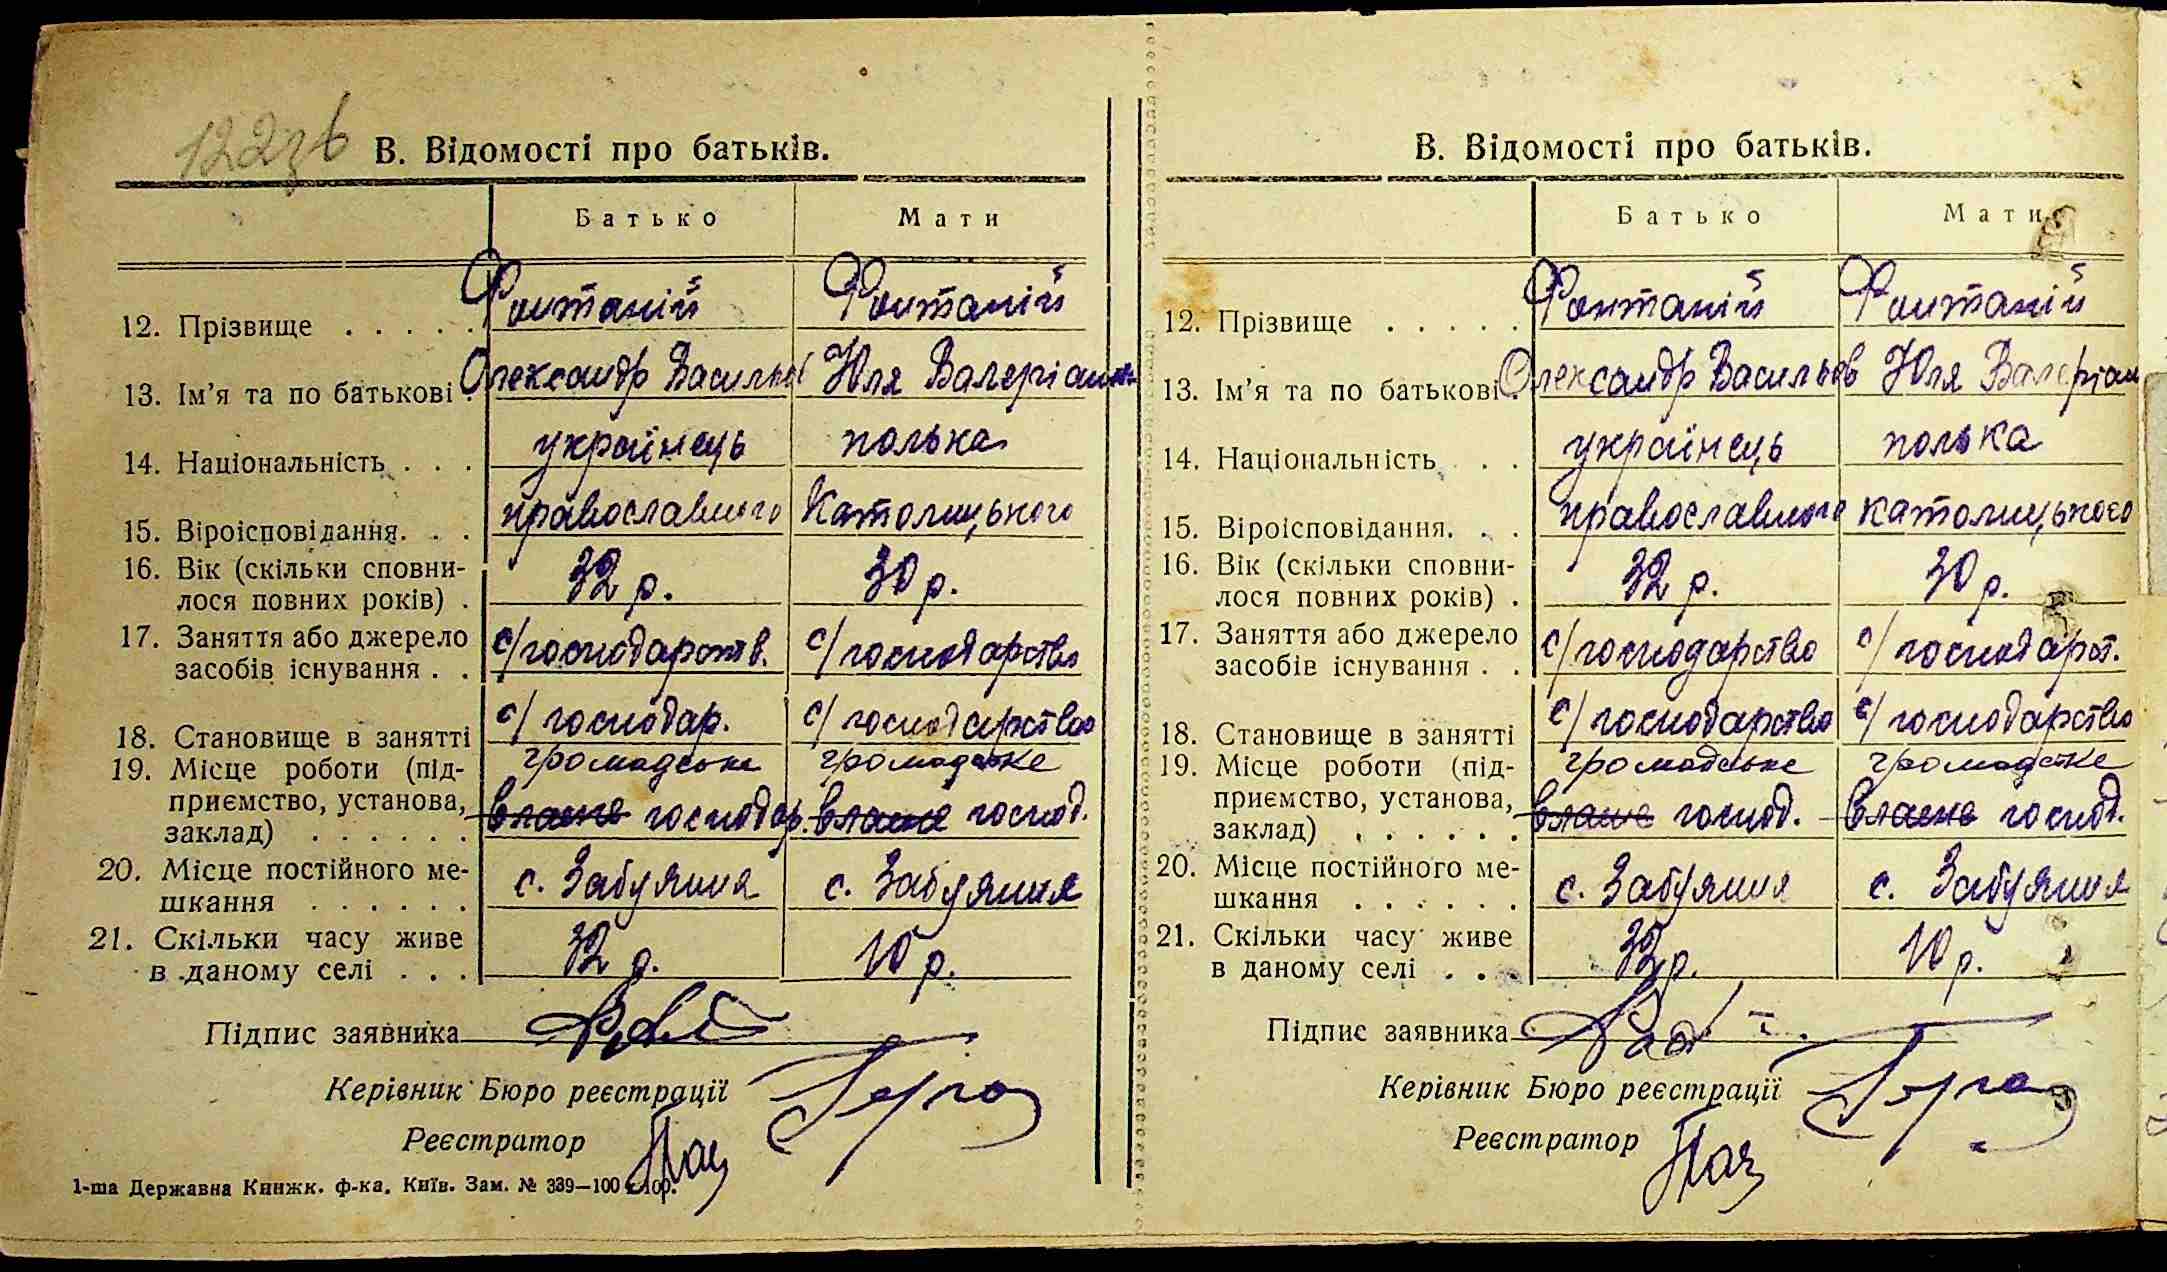 122зв
В. Відомості про батьків.
Батько Мати
12. Прізвище . . . . . Фонтаній Фонтаній
13. Ім'я та по батькові . Олександр Васильов Юля Валеріанов
14. Національність . . . українець полька
15. Віроісповідання. . . православного Католицького
16. Вік (скільки сповни-
лося повних років) . 32 р. 30 р.
17. Заняття або джерело
засобів існування . . с/господарств. с/господарство
18. Становище в занятті с/господар. с/господарство
19. Місце роботи (під- громадське громадське
приємство, установа, власне господар. власне господ.
заклад) . . . . . .
20. Місце постійного ме-
шкання . . . . . . с. Забуяння с. Забуяння
21. Скільки часу живе
в даному селі . . . 32 р. 10 р.
Підпис заявника
Керівник Бюро реєстрації
Реєстратор
1-ша Державна Книжк. ф-ка. Київ. Зам. № 339—100 х 100.
В. Відомості про батьків.
Батько Мати
12. Прізвище . . . . . Фонтаній Фонтаній
13. Ім'я та по батькові . Олександр Васильов Юля Валеріан
14. Національність . . українець полька
15. Віроісповідання. . . православного католицького
16. Вік (скільки сповни-
лося повних років) . 32 р. 30 р.
17. Заняття або джерело
засобів існування . . с/господарство с/господарст.
18. Становище в занятті с/господарство с/господарство
19. Місце роботи (під- громадське громадське
приємство, установа, власне господ. власне господ.
заклад) . . . . . .
20. Місце постійного ме-
шкання . . . . . . с. Забуяння с. Забуяння
21. Скільки часу живе
в даному селі . . . 32 р. 10 р.
Підпис заявника
Керівник Бюро реєстрації
Реєстратор